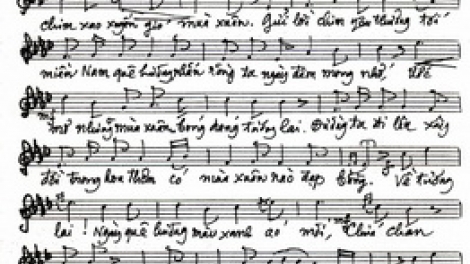 chim xao xuyến gió mùa xuân. Gửi lời chim yêu thương tới
miền Nam quê hương nhắn rằng ta ngày đêm mong nhớ, ước
mơ những mùa xuân tương lai. Đi lên xây
đời trong hoa thơm có mùa xuân nào đẹp bằng. Về tương
lai! Ngày quê hương màu xanh áo mới, chân